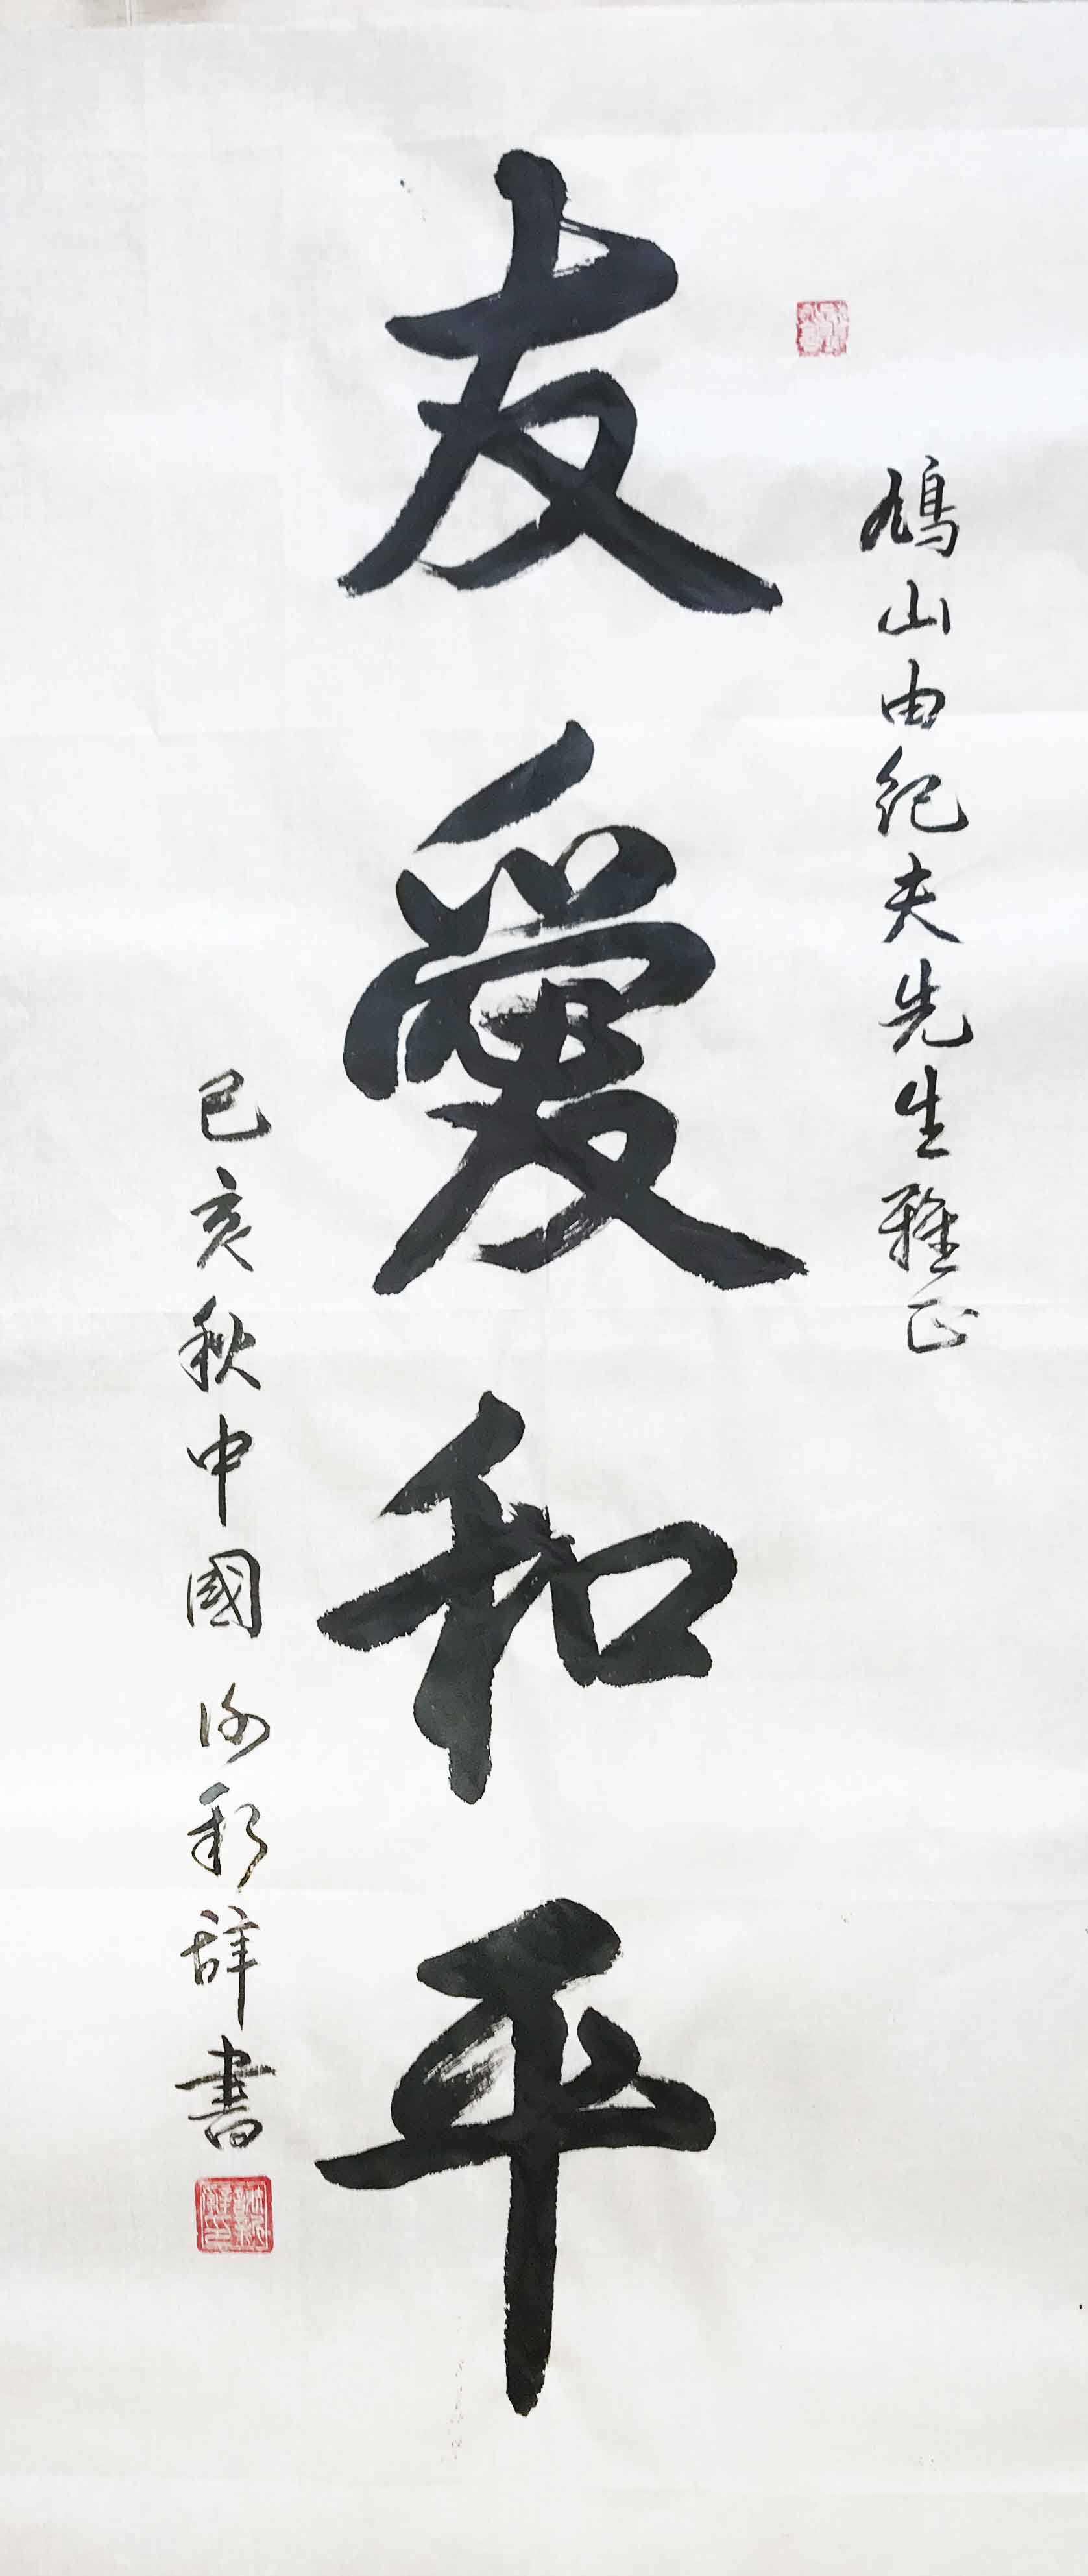 鳩山由纪夫先生雅正
友愛和平
己亥秋中國 彩辞書